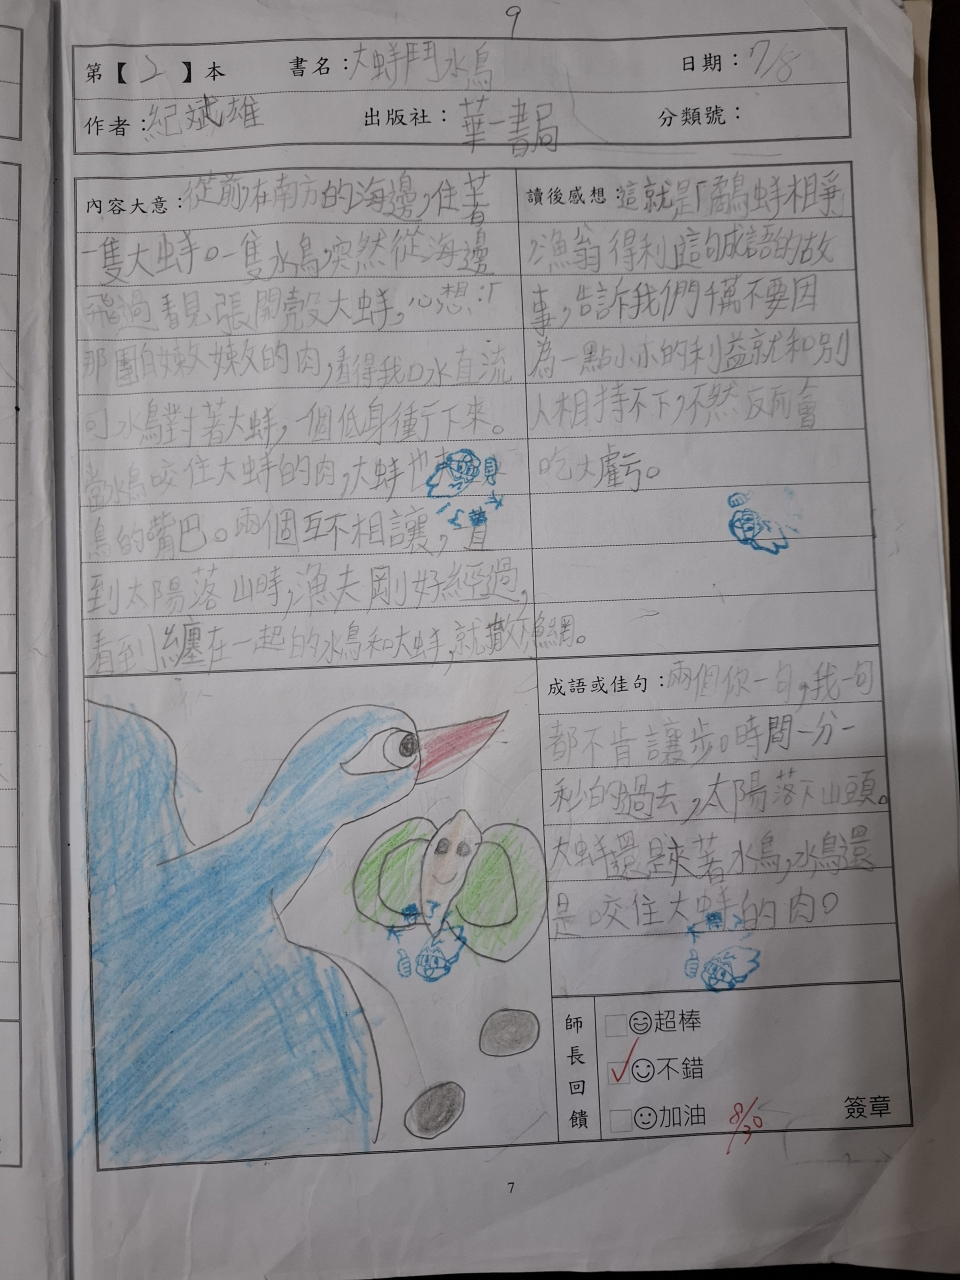 9
第【 2 】本 書名：大蚌鬥水鳥 日期：7/8
作者：紀斌雄 出版社：華一書局 分類號：
內容大意：從前，在南方的海邊，住著
一隻大蚌。一隻水鳥，突然從海邊
飛過看見張開殼大蚌，心想：「
那團白嫩嫩的肉，看得我口水直流
水鳥對著大蚌，一個低身衝下來。
當水鳥咬住大蚌的肉，大蚌也
鳥的嘴巴。兩個互不相讓，直
到太陽落山時，漁夫剛好經過，
看到纏在一起的水鳥和大蚌，就撒下漁網。
讀後感想：這就是「鷸蚌相爭
漁翁得利這句成語的故
事，告訴我們千萬不要因
為一點小小的利益就和別
人相持不下，不然反而會
吃大虧。
成語或佳句：兩個你一句，我一句
都不肯讓步。時間一分一
秒的過去，太陽落下山頭。
大蚌還是夾著水鳥，水鳥還
是咬住大蚌的肉。
不得了
不得了
師長回饋
超棒
不錯
加油
8/30
簽章
7